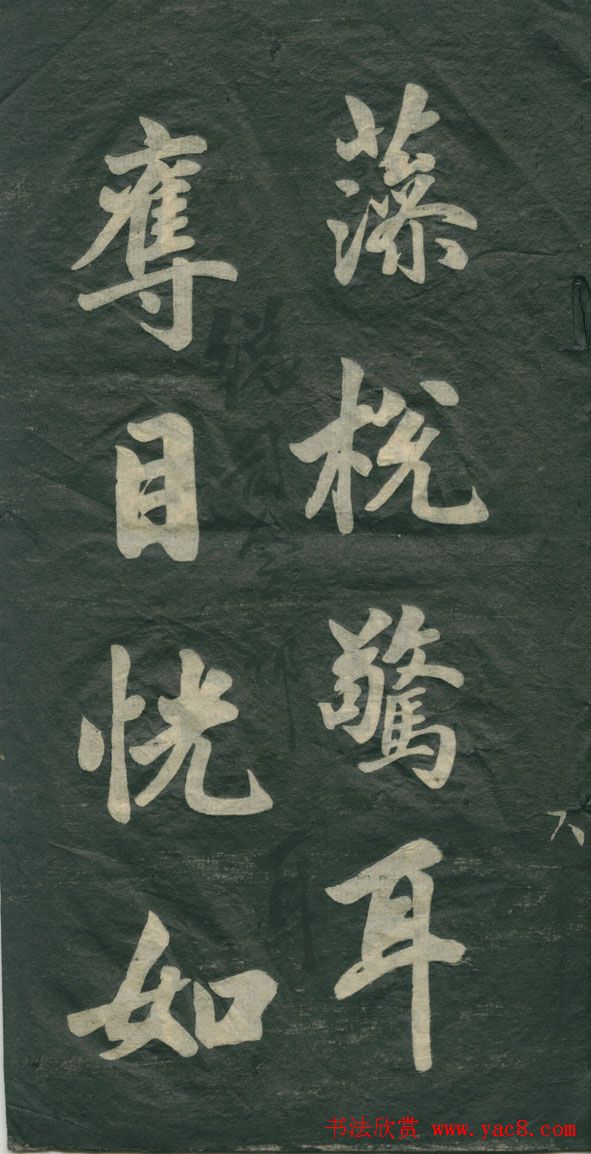 六
藻棁驚耳
奪目恍如
书法欣赏 www.yac8.com